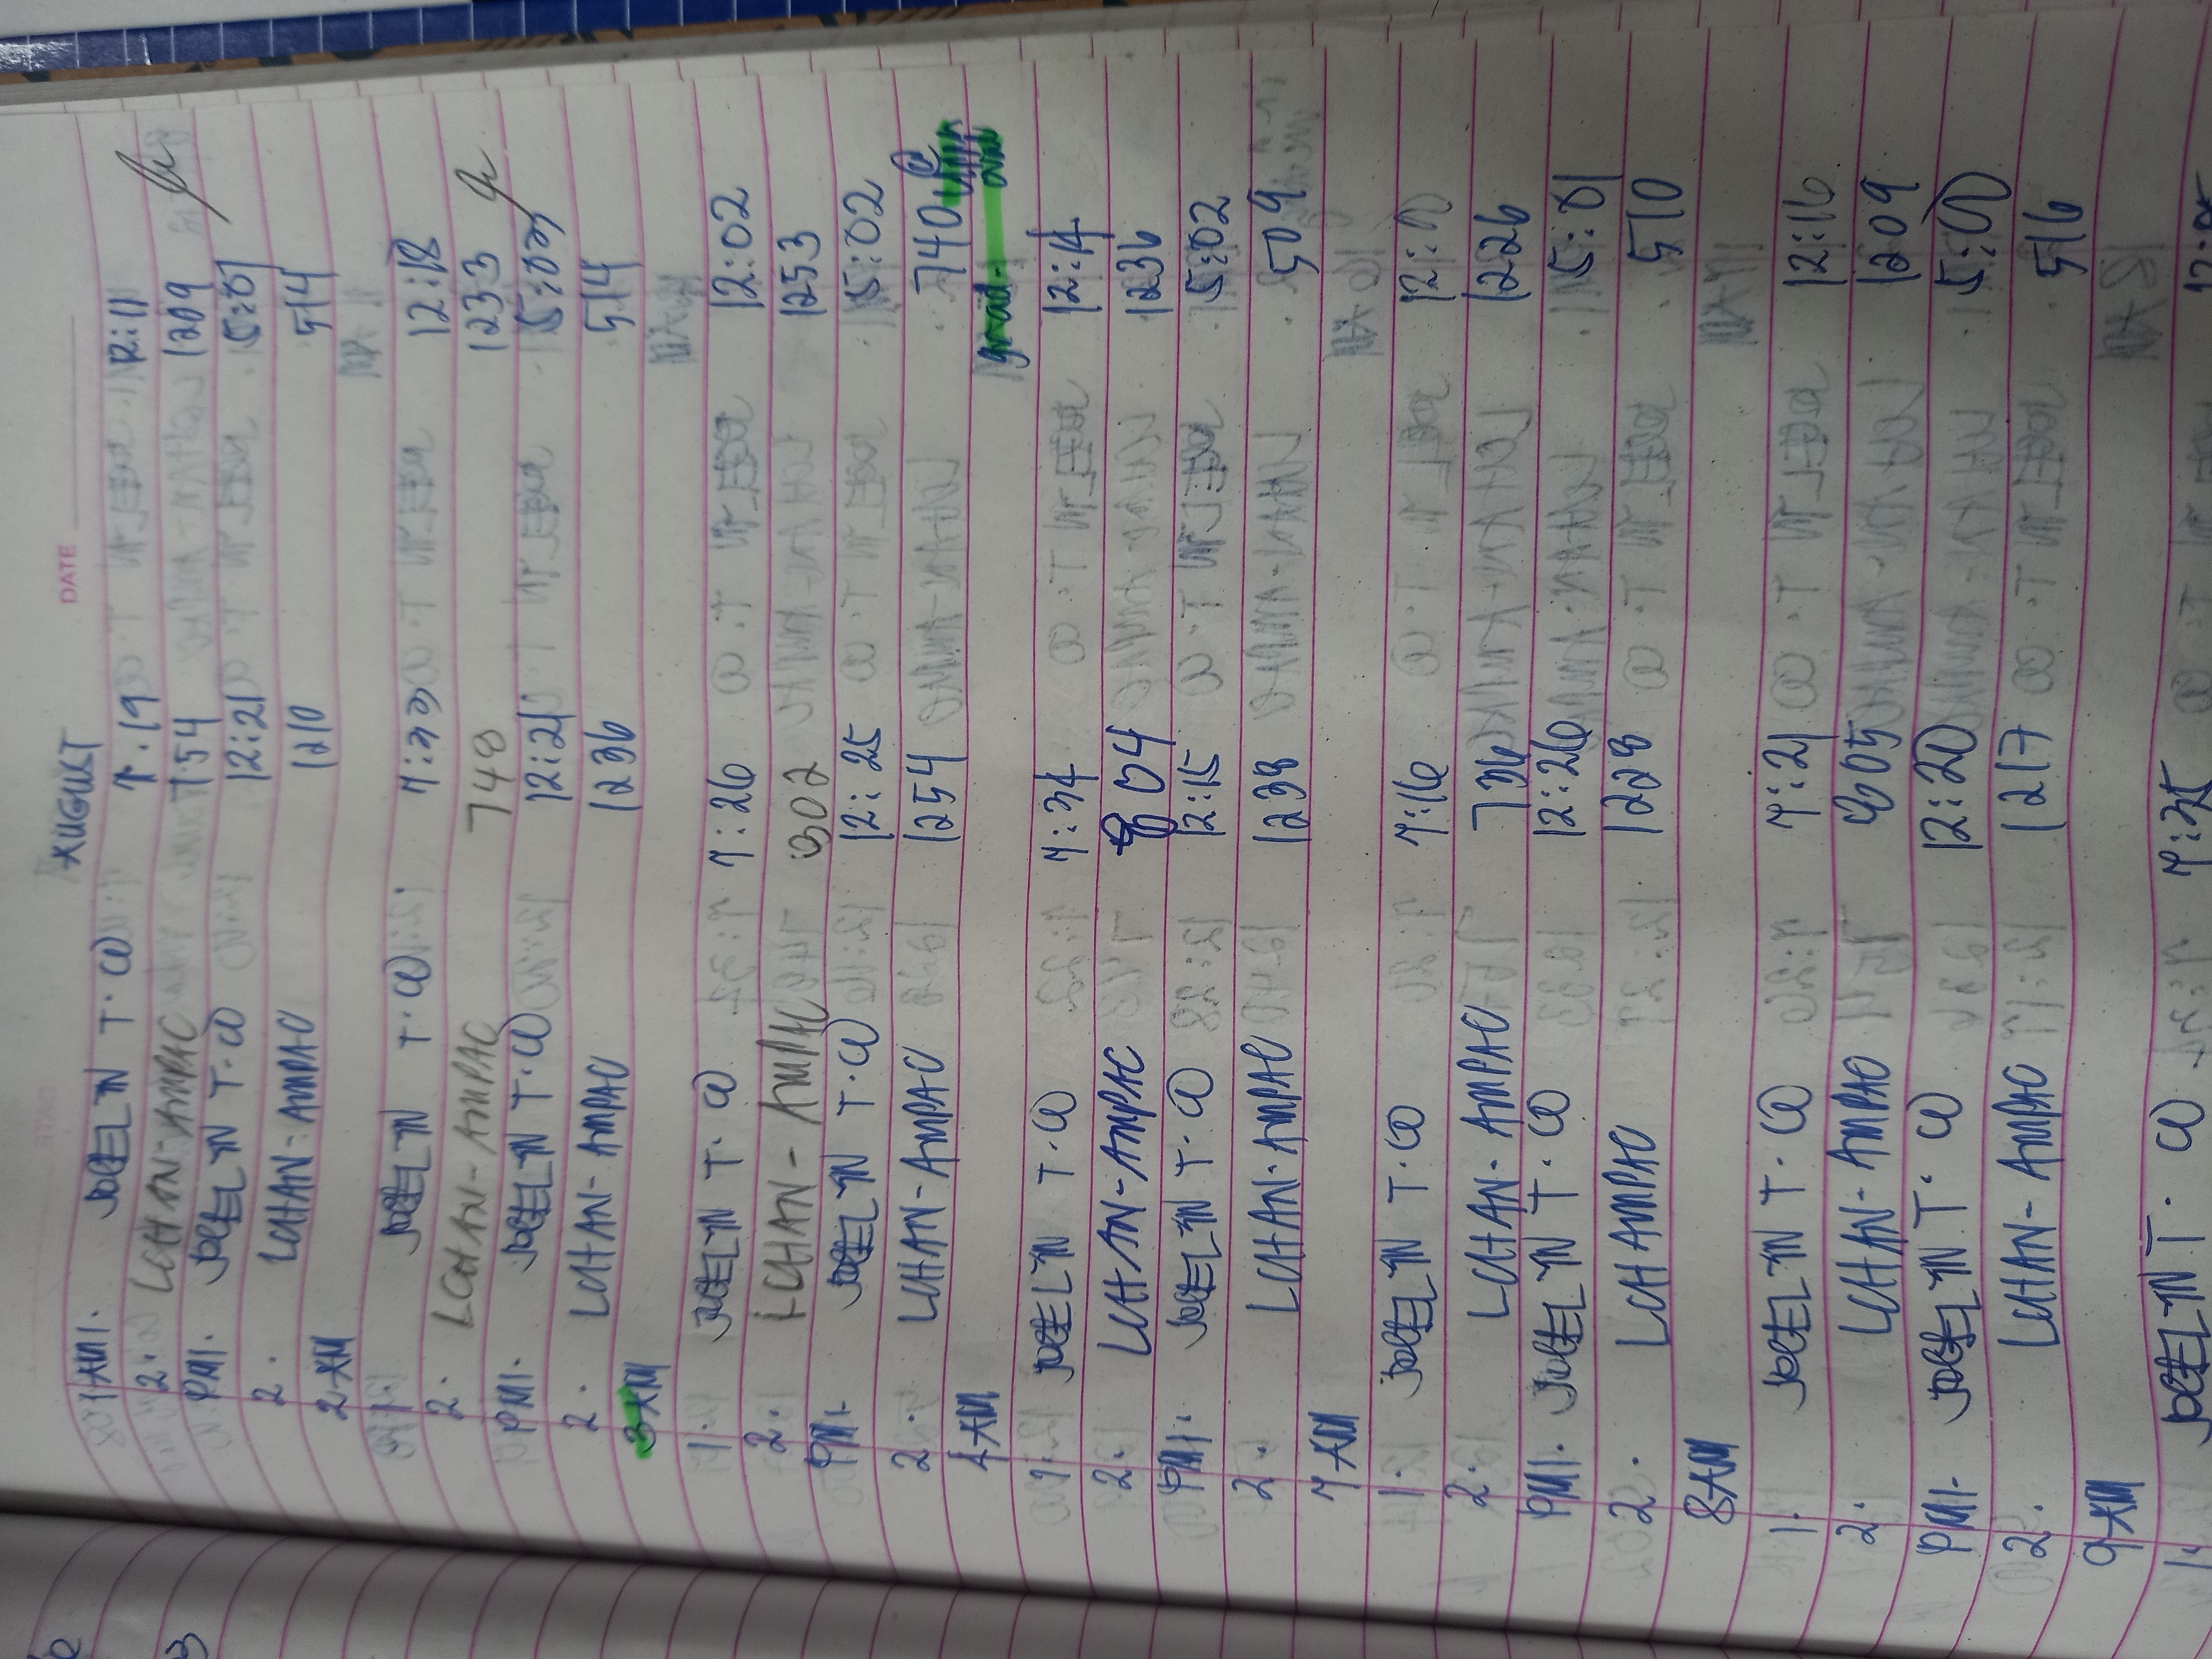 DATE
AUGUST
1 AM 1. JOEL IN T. 7:19 12:11
2. LCHAN-AMPAC 754 1209
PM 1. JOEL IN T. 12:21 5:01
2. LCHAN-AMPAC 1210 514
2 AM
JOEL IN T. 7:33 12:18
2. LCHAN-AMPAC 748 1233
PM 1. JOEL IN T. 12:21 5:03
2. LCHAN-AMPAC 1236 514
3 AM
1. JOEL IN T. 7:26 12:02
2. LCHAN-AMPAC 802 1253
PM 1. JOEL IN T. 12:25 5:02
2. LCHAN-AMPAC 1254 740
4 AM grad.
1. JOEL IN T. 7:34 12:14
2. LCHAN-AMPAC 804 1236
PM 1. JOEL IN T. 12:15 5:02
2. LCHAN-AMPAC 1238 509
7 AM
1. JOEL IN T. 7:16
2. LCHAN-AMPAC 736 1226
PM 1. JOEL IN T. 12:26 5:01
2. LCHAN AMPAC 1228 510
8 AM
1. JOEL IN T. 7:21 12:16
2. LCHAN-AMPAC 805 1209
PM 1. JOEL IN T. 12:20
2. LCHAN-AMPAC 1217 516
9 AM
1. JOEL IN T. 7:35